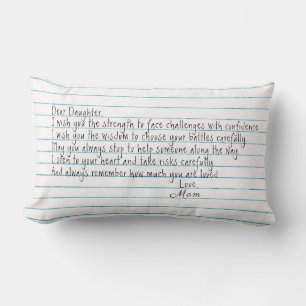 Dear Daughter,
I wish you the strength to face challenges with confidence
I wish you the wisdom to choose your battles carefully
May you always stop to help someone along the way
Listen to your heart and take risks carefully
And always remember how much you are loved
Love,
Mom